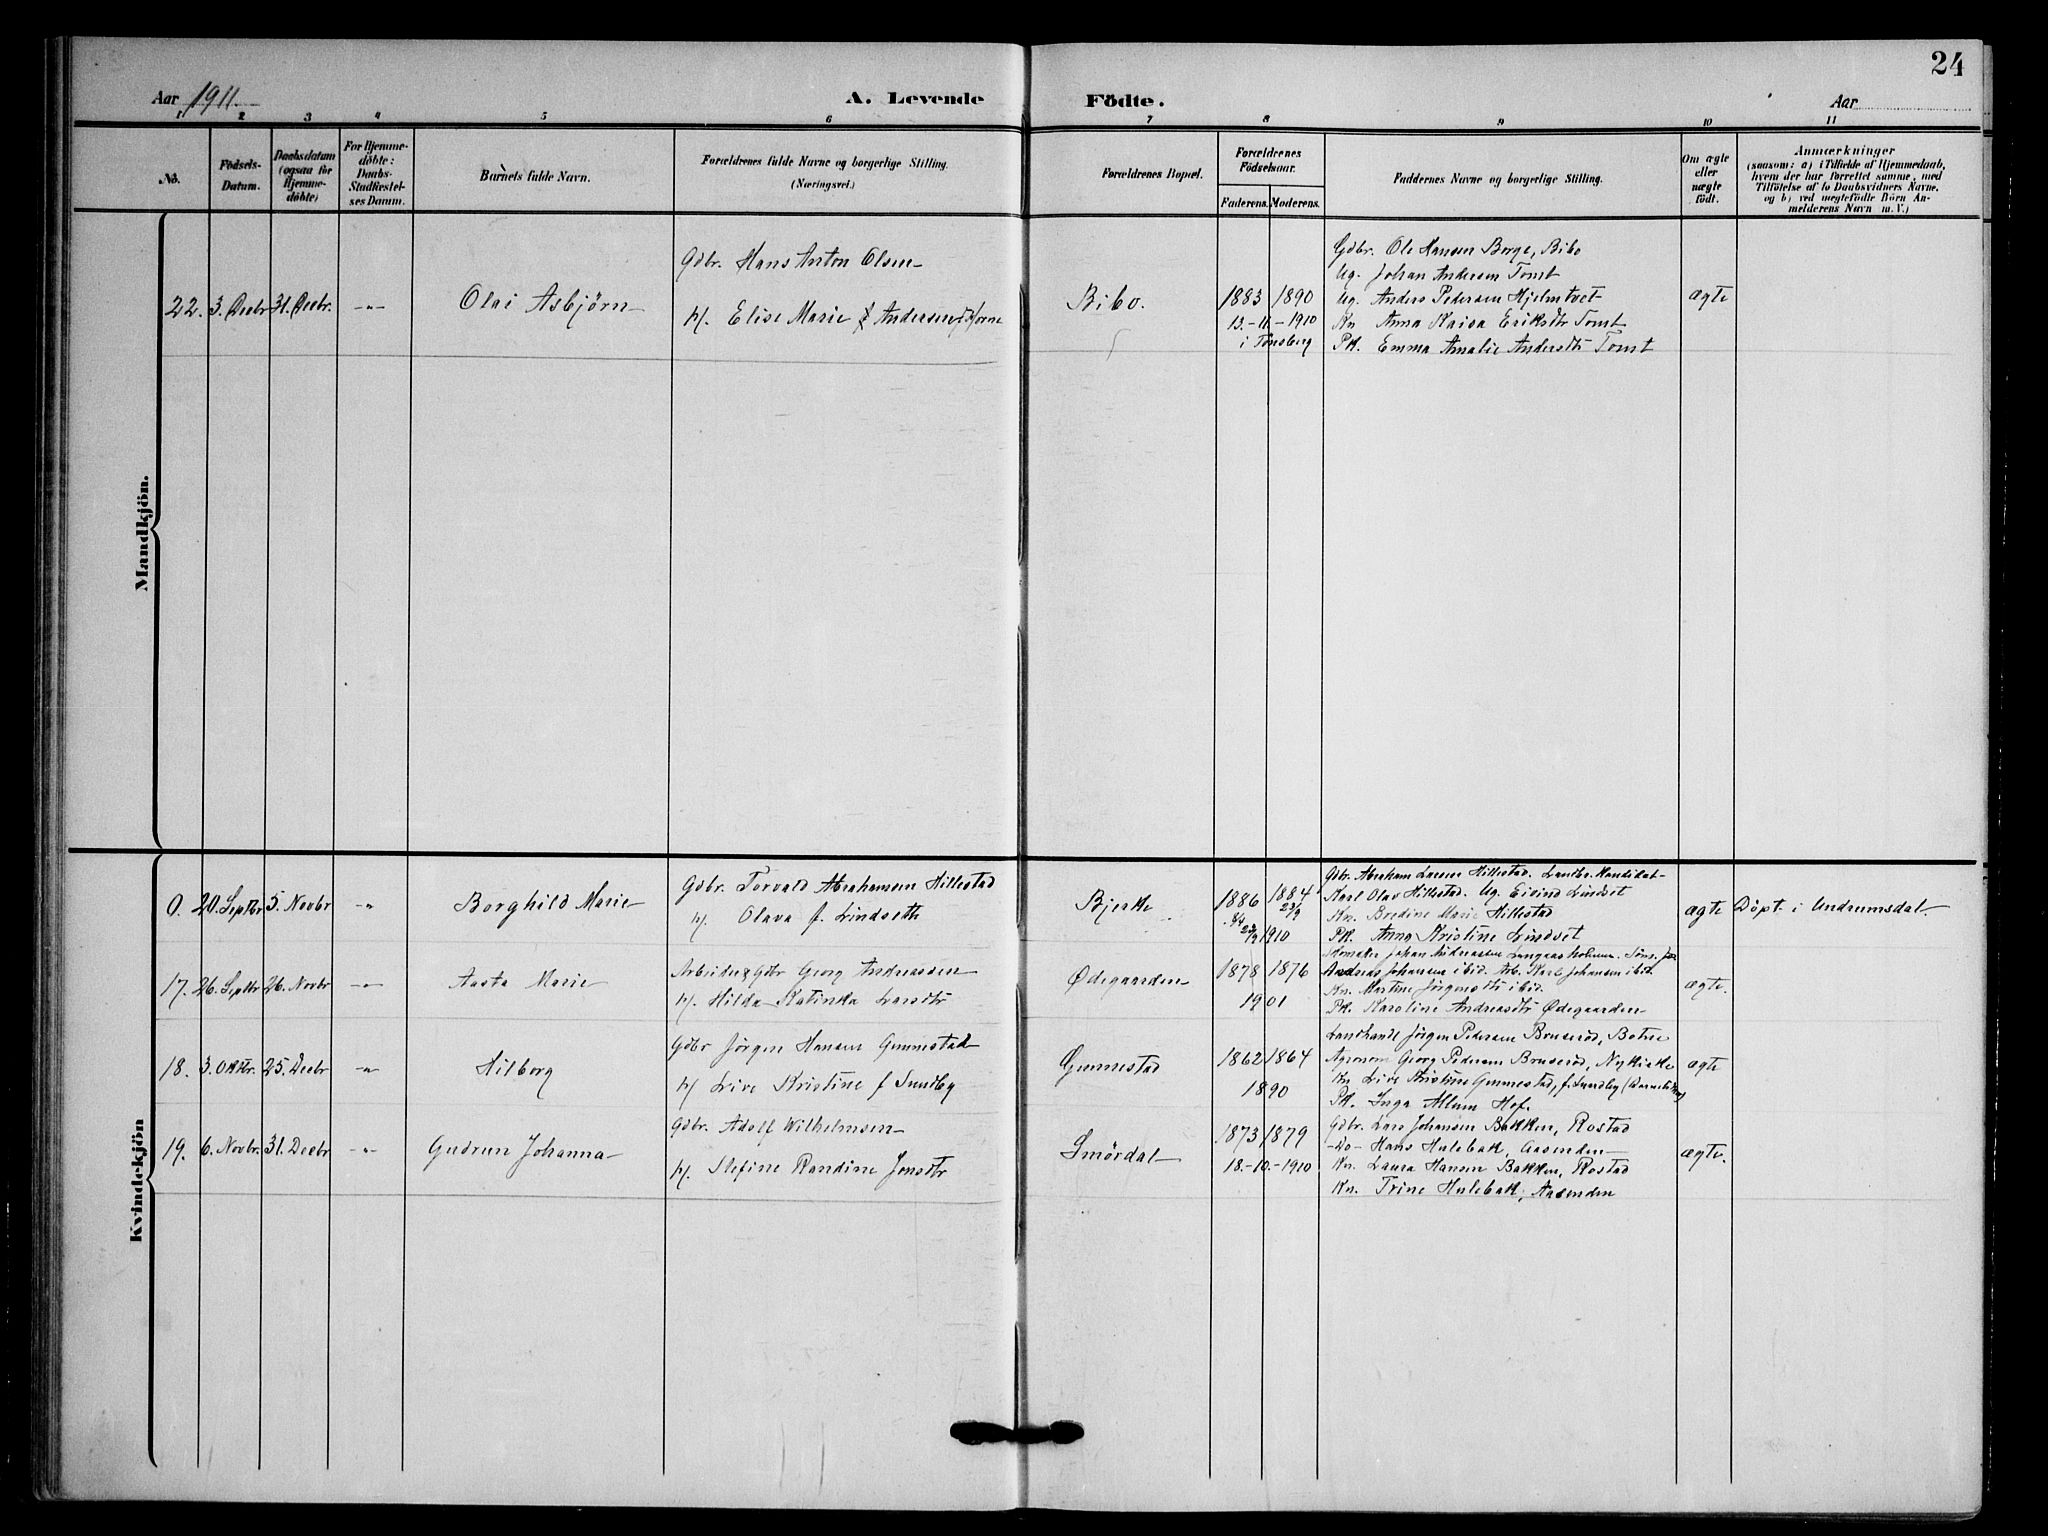 24
Aar 1911.
A. Levende Födte.
Aar
1 2 3 4 5 6 7 8 9 10 11
No.
Födsels-
Datum.
Daabsdatum
(ogsaa for
Hjemme-
döbte)
For Hjemme-
döbte:
Daabs-
Stadfæstel-
ses Datum.
Barnets fulde Navn.
Forældrenes fulde Navne og borgerlige Stilling.
(Næringsvei.)
Forældrenes Bopæl.
Forældrenes
Födselsaar.
Faderens. Moderens.
Faddernes Navne og borgerlige Stilling.
Om ægte
eller
uægte
födt.
Anmærkninger
(saasom: a) i Tilfælde af Hjemmedaab,
hvem der har forrettet samme, med
Tilföielse af to Daabsvidners Navne.
og b) ved uægtefödte Börn An-
melderens Navn m. V.)
Mandkjön.
22. 3. Decbr 31. Decbr. -"- Olai Asbjörn
Gdbr. Hans Anton Olsen
H. Elise Marie f Andersen
Bibo.
1883 1890
13.-11.-1910
i Tønsberg
Gdbr. Ole Hansen Borge, Bibo
Ug. Johan Andersen Tomt
Ug. Anders Pedersen Hjelmtvet
Kn Anna Kaisa Eriksdtr Tomt
Pk. Emma Amalie Andersdtr Tomt
ægte
Kvindekjön
0. 20. Septbr 5. Novbr -"- Borghild Marie
Gdbr. Torvald Abrahamsen Hillestad
H. Olava f. Lindseth
Bjerke
1886 1884
8/4 23/9
23/9 1910
Gdbr. Abraham Larsen Hillestad. Landbr. Kandidat
Karl Olav Hillestad. Ug. Eivind Lindset
Kn. Bredine Marie Hillestad
Pk. Anna Kristine Lindset
ægte
Döpt i Undrumsdal.
17. 26. Septbr 26. Novbr -"- Aasta Marie
Arbeider & Gdbr Georg Andreassen
H. Hilda Katinka Larsdtr
Ødegaarden
1878 1876
1901
Skomaker Johan Andreassen Langaasholmen. Töns.
Andreas Johansen ibid. Arb. Karl Johansen ibid
Kn. Martine Jörgensdtr ibid.
Pk. Karoline Andreasdtr Ødegaarden
ægte.
18. 3. Oktbr. 25. Decbr -"- Hilborg
Gdbr Jörgen Hansen Gunnestad
H Live Kristine f Sundby
Gunnestad
1862 1864
1890
Landhandl Jörgen Pedersen Bruseröd, Botne
Agronom Georg Pedersen Bruseröd, Nykirke
Kn Live Kristine Gunnestad, f. Sundby
Pk. Inga Allum Hof.
ægte
19. 6. Novbr. 31. Decbr -"- Gudrun Johanna
Gdbr. Adolf Wilhelmsen
H. Stefine Randine Jensdtr
Smördal
1873 1879
18.-10.-1910
Gdbr. Lars Johansen Bakken, Rostad
-Do- Hans Hulebak, Aasenden
Kn. Laura Hansen Bakken, Rostad
Kn. Trine Hulebak, Aasenden
ægte.